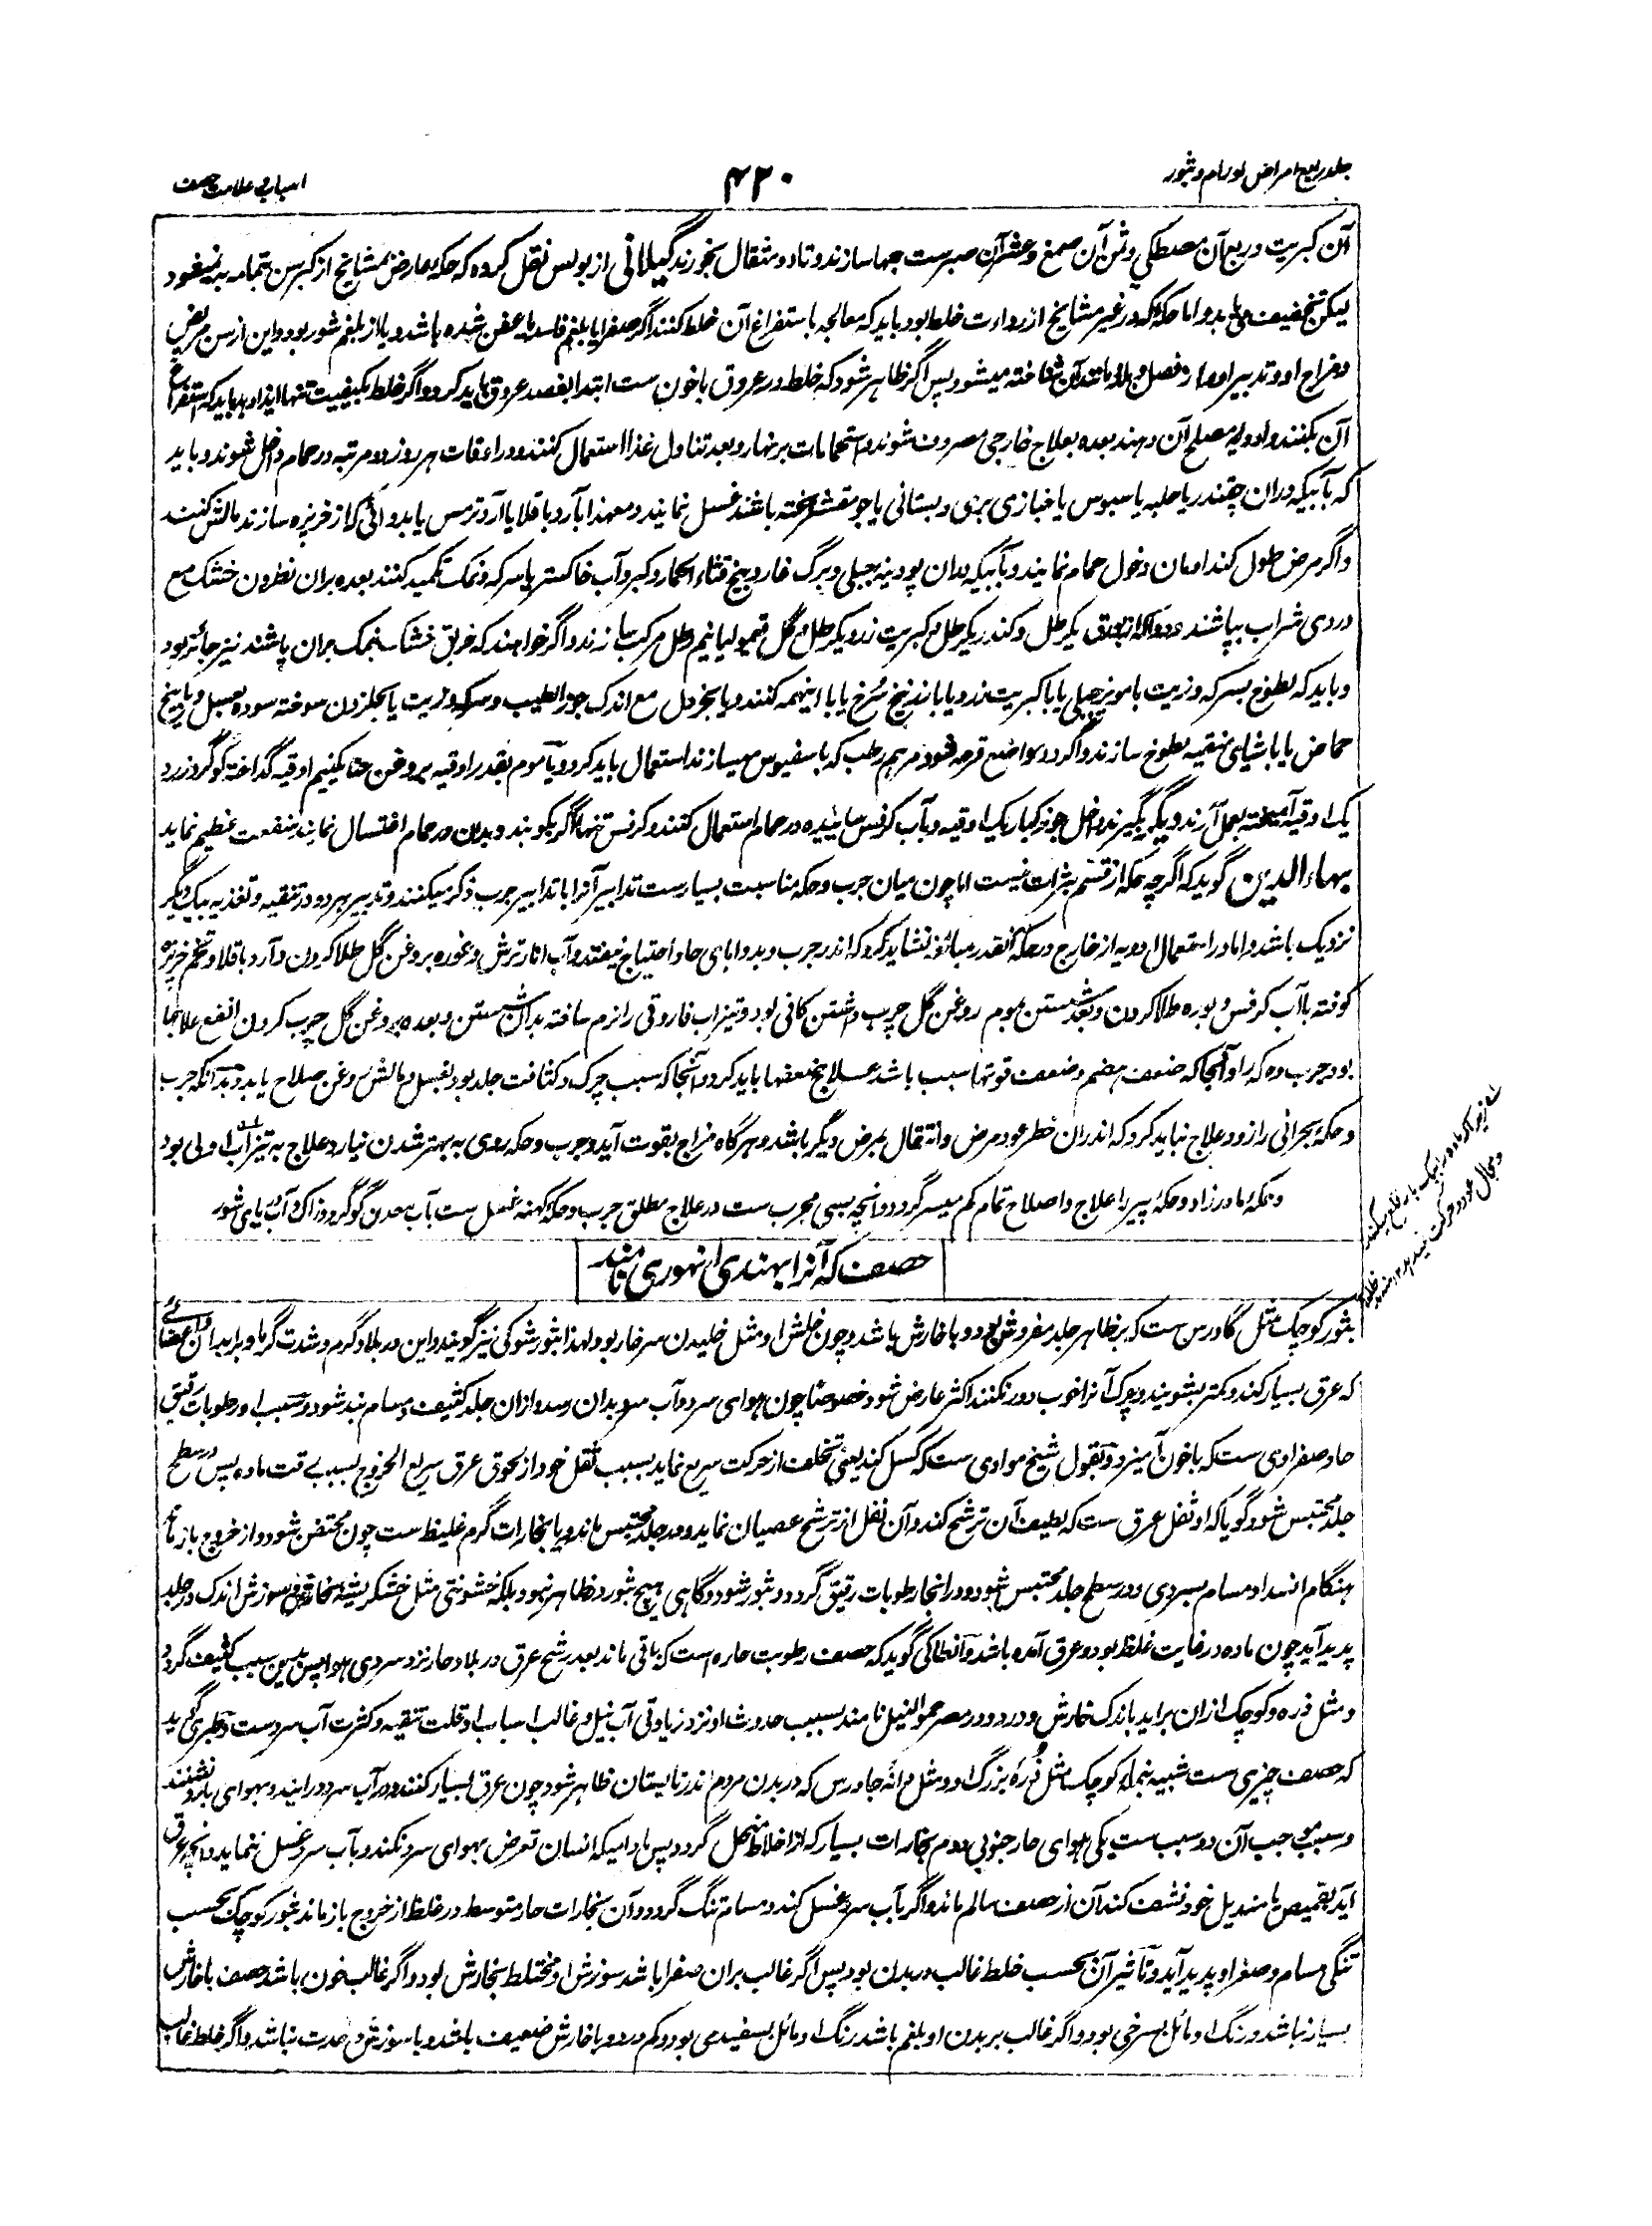 جلد رابع امراض اورام و بثور
۴۲۰
اسباب و علامت حصف
آن کبریت و ربع آن مصطکی و ثمن آن صمغ و عشر آن صبرست حبها سازند و تا دو مثقال بخورند گیلانی از بولس نقل کرده که حکه عارض بمشایخ از کبر سن بتمامه به نمیشود
لیکن تخفیف می یابد و اما حکهٔ که در غیر مشایخ از رداءت خلط بود باید که معالجه باستفراغ آن خلط کنند اگر صفرا یا بلغم فاسد یا عفن شده باشد و یا از بلغم شور بود و این از سن مریض
و مزاج او و تدبیر او و از فصل و بلد و مانند آن شناخته میشود پس اگر ظاهر شود که خلط در عروق با خون ست ابتدا بفصد عروق باید کرد و اگر خلط بکیفیت تنها ایذا دهد باید که استفراغ
آن بکنند و ادویه مصلح آن دهند بعده بعلاج خارجی مصروف شوند و استحمامات بر نهار و بعد تناول غذا استعمال کنند و در اوقات هر روز دو مرتبه در حمام داخل شوند و باید
که بآبیکه دران چقندر یا حلبه یا سبوس یا خبازی بری و بستانی یا جو مقشر پخته باشند غسل نمایند و معهذا بآرد باقلا یا آرد ترمس یا بدوائی که از خربزه سازند مالش کنند
و اگر مرض طول کند ادمان دخول حمام نمایند و بآبیکه دران پودینه جبلی و برگ غار و بیخ قثاء الحمار و کبر و آب خاکستر یا سرکه و نمک تکمید کنند بعده بران نطرون خشک مع
دردی شراب بپاشند و دوا که از بورق یکرطل و کندر یکرطل و کبریت زرد یکرطل و گل قیمولیا نیم رطل مرکب سازند و اگر خواهند که خربق خشک بنمک بران پاشند نیز جائز بود
و باید که لطوخ بسرکه و زیت با مویز جبلی یا با کبریت زرد یا با زرنیخ سرخ یا با اینهمه کنند و یا بخردل مع اندک جوز الطیب و سرکه و زیت یا بحلزون سوخته سوده بعسل و یا بیخ
حماض یا با شیای منقیه لطوخ سازند و اگر در مواضع قرحه شود مرهم رطب که با سفیوس میسازند استعمال باید کرد و یا موم بقدر اوقیه بروغن حنا یکنیم اوقیه گداخته گوگرد زرد
یک اوقیه آمیخته بعمل آرند و دیگر بگیرند داخل جوز کبار یک اوقیه و بآب کرفس سائیده در حمام استعمال کنند و کرفس تنها اگر بکوبند و بدان در حمام اغتسال نمایند منفعت عظیم نماید
بهاء الدین گوید که اگرچه حکه از قسم بثرات نیست اما چون میان جرب و حکه مناسبت بسیارست تدابیر آنرا با تدابیر جرب ذکر میکنند و تدبیر هر دو در تنقیه و تغذیه بیک دیگر
نزدیک باشد و اما در استعمال ادویه از خارج در حکه آنقدر مبالغه نشاید کرد که اندر جرب و بدواهای حاد احتیاج نیفتد و آب انار ترش و غوره بروغن گل طلا کردن و آرد باقلا و تخم خربزه
کوفته بآب کرفس و بوره طلا کردن و بعد شستن بموم روغن گل چرب داشتن کافی بود و تیزاب فاروقی را نرم ساخته بدان شستن و بعده بروغن گل چرب کردن انفع علاجها
بود جرب و حکه را و آنجا که ضعف هضم و ضعف قوتها سبب باشد علاج ضعفها باید کرد و آنجا که سبب چرک و کثافت جلد بود بغسل و مالش روغن صلاح یابد و بدانکه جرب
و حکهٔ بحرانی را زود علاج نباید کرد که اندران خطر عود مرض و انتقال بمرض دیگر باشد و هرگاه مزاج بقوت آید و جرب و حکه روی به بهتر شدن نیارد علاج به تیزاب اولی بود
و حکهٔ مادرزاد و حکهٔ پیر را علاج و اصلاح تمام کم میسر گردد و آنچه بسی مجرب ست در علاج مطلق جرب و حکهٔ کهنه غسل ست بآب معدن گوگرد و زاک و آب دریای شور
حصف که آنرا بهندی انهوری نامند
بثور کوچک مثل گاورس ست که بر ظاهر جلد مفروش بود و با خارش باشد و چون خلش او مثل خلیدن سر خار بود لهذا بثور شوکی نیز گویند و این در بلاد گرم و شدت گرما و بر ابدان و اعضائے
که عرق بسیار کند و کمتر بشویند و چرک آنرا خوب دور نکنند اکثر عارض شود خصوصاً چون هوای سرد و آب سرد بدان رسد و ازان جلد کثیف و مسام بند شود و سبب او رطوبات رقیق
حاد صفراوی ست که با خون آمیزد و بقول شیخ موادی ست که کسل کند یعنی تخلف از حرکت سریع نماید بسبب ثقل خود از لحوق عرق سریع الخروج بسبب رقت ماده پس در سطح
جلد محتبس شود گویا که او ثفل عرق ست که لطیف آن ترشح کند و آن ثفل از ترشح عصیان نماید و در جلد محتبس ماند و یا بخارات گرم غلیظ ست چون محتقن شود و از خروج باز ماند
هنگام انسداد مسام بسردی و در سطح جلد محتبس شود و در انجا رطوبات رقیق گردد و بثور شود و گاهی هیچ بثور ظاهر نبود بلکه خشونتی مثل خشکریشه با خارش و سوزش اندک در جلد
پدید آید چون ماده در غایت غلظ بود و عرق آمده باشد و انطاکی گوید که حصف رطوبت حاره است که باقی ماند بعد رشح عرق در بلاد حار نزد سردی هوا پس بدین سبب کثیف گردد
و مثل ذره و کوچک ازان براید باندک خارش و درد و در مصر حمو النیل نامند بسبب حدوث او نزد زیادتی آب نیل و غالب اسباب او قلت تنقیه و کثرت آب سردست و طبری گوید
که حصف چیزی ست شبیه بنمله کوچک مثل ذرهٔ بزرگ او و مثل دانهٔ جاورس که در بدن مردم اندر تابستان ظاهر شود چون عرق بسیار کنند و در آب سرد در آیند و بهوای بارد نشینند
و سبب موجب آن دو سبب ست یکی هوای حار جنوبی دوم بخارات بسیار که از اخلاط متحلل گردد پس مادامیکه انسان تعرض بهوای سرد نکند و بآب سرد غسل ننماید و آنچه عرق
آید بقمیص یا مندیل خود نشف کند آن از حصف سالم ماند و اگر بآب سرد غسل کند و مسام تنگ گردد و آن بخارات حاد متوسط در غلظ از خروج باز ماند بثور کوچک بحسب
تنگی مسام و صفر او پدید آید و تاثیر آن بحسب خلط غالب در بدن بود پس اگر غالب بران صفرا باشد سوزش او مختلط بخارش بود و اگر غالب خون باشد حصف با خارش
بسیار نباشد و رنگ او مائل بسرخی بود و اگر غالب بر بدن او بلغم باشد رنگ او مائل بسفیدی بود و کم درد و با خارش ضعیف باشد و با سوزش و حدت نباشد و اگر خلط غالب
زیرا که ماده را بیک بار قلع میکند
و مجال عود و حرکت نمیدهد